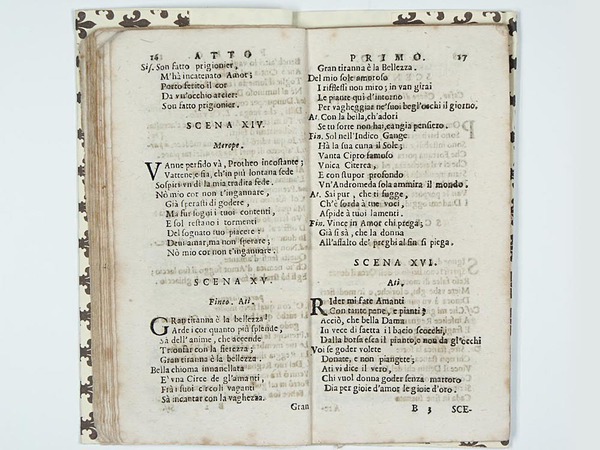 16 ATTO
Sis. Son fatto prigionier,
M'hà incatenato Amor;
Porto ferito il cor
Da vn'occhio arcier:
Son fatto prigionier.
SCENA XIV.
Merope.
VAnne perfido và, Protheo incostante;
Vattene, e sia, ch'in più lontana sede
Sospiri vn dì la mia tradita fede.
Nò mio cor non t'ingannare,
Già sperasti di godere,
Ma fur sogni i tuoi contenti,
E sol restano i tormenti
Del sognato tuo piacere:
Deui amar, ma non sperare;
Nò mio cor non t'ingannare.
SCENA XV.
Fineo. Ati.
GRan tiranna è la bellezza!
Arde i cor quanto più splende,
Sà dell'anime, che accende
Trionfar con la fierezza;
Gran tiranna è la bellezza.
Bella chioma innanellata
E' vna Circe de gl'amanti,
Frà i suoi circoli vaganti
Sà incantar con la vaghezza.
Gran
PRIMO. 17
Gran tiranna è la Bellezza.
Del mio sole amoroso
I riflessi non miro; in van girai
Le piante quì d'intorno
Per vagheggiar ne'suoi begl'occhi il giorno.
At. Con la bella, ch'adori
Se tu sorte non hai, cangia pensiero.
Fin. Sol nell'Indico Gange
Hà la sua cuna il Sole;
Vanta Cipro famoso
Vnica Citerea,
E con stupor profondo
Vn'Andromeda sola ammira il mondo.
At. Sai pur, che ti fugge,
Ch'è sorda à tue voci,
Aspide à tuoi lamenti.
Fin. Vince in Amor chi prega;
Già si sà, che la donna
All'assalto de' preghi al fin si piega.
SCENA XVI.
Ati.
RIder mi fate Amanti
Con tante pene, e pianti?
Acciò, che bella Dama
In vece di saetta il bacio scocchi,
Dalla borsa esca il pianto, e non da gl'occhi
Voi se goder volete
Donate, e non piangete;
Ati vi dice il vero,
Chi vuol donna goder senza martoro
Dia per gioie d'amor le gioie d'oro.
B 3 SCE-